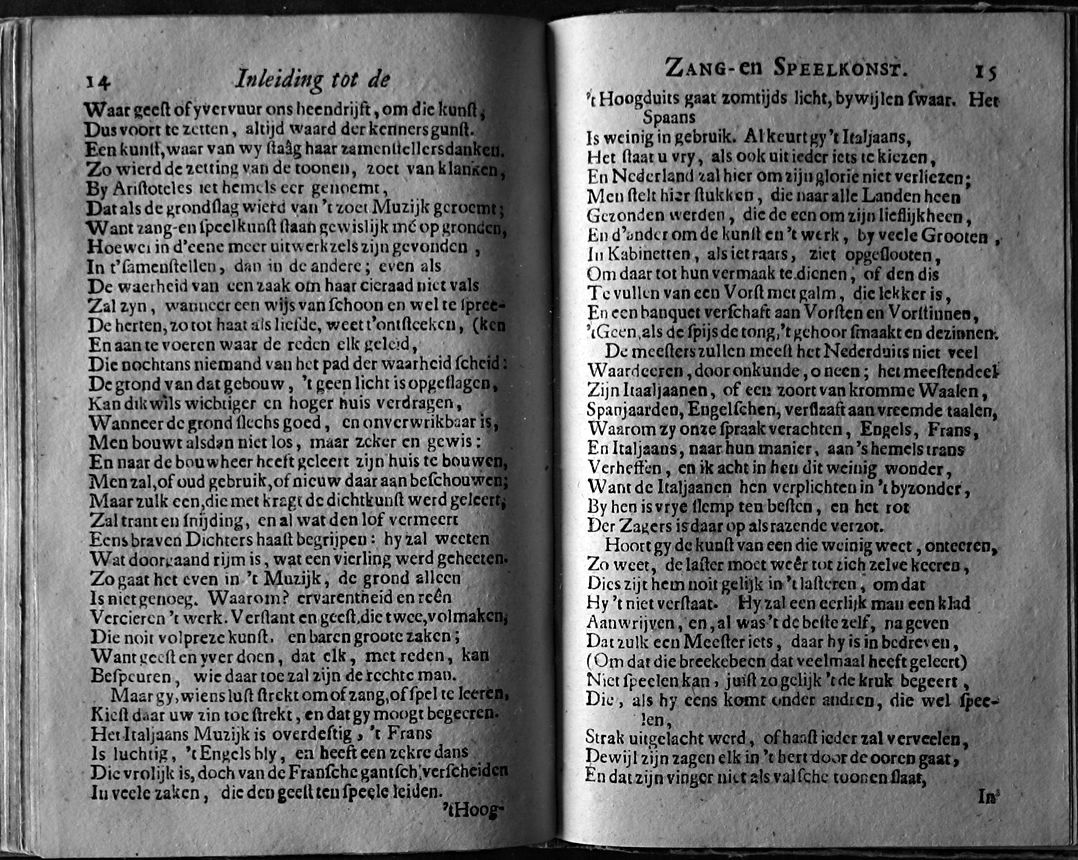 14 Inleiding tot de
Waar geeſt of yvervuur ons heendrijft, om die kunſt,
Dus voort te zetten, altijd waard der kenners gunſt.
Een kunſt, waar van wy ſtaâg haar zamenſtellers danken.
Zo wierd de zetting van de toonen, zoet van klanken,
By Ariſtoteles iet hemels eer genoemt,
Dat als de grondſlag wierd van 't zoet Muzijk geroemt;
Want zang-en ſpeelkunſt ſtaan gewislijk mé op gronden,
Hoewel in d'eene meer uitwerkzels zijn gevonden,
In t'ſamenſtellen, dan in de andere; even als
De waerheid van een zaak om haar cieraad niet vals
Zal zyn, wanneer een wijs van ſchoon en wel te ſpree-
De herten, zo tot haat als liefde, weet t'ontſteeken, (ken
En aan te voeren waar de reden elk geleid,
Die nochtans niemand van het pad der waarheid ſcheid:
De grond van dat gebouw, 't geen licht is opgeſlagen,
Kan dikwils wichtiger en hoger huis verdragen,
Wanneer de grond ſlechs goed, en onverwrikbaar is,
Men bouwt alsdan niet los, maar zeker en gewis:
En naar de bouwheer heeft geleert zijn huis te bouwen,
Men zal, of oud gebruik, of nieuw daar aan beſchouwen;
Maar zulk een, die met kragt de dichtkunſt werd geleert,
Zal trant en ſnijding, en al wat den lof vermeert
Eens braven Dichters haaſt begrijpen: hy zal weeten
Wat doorgaand rijm is, wat een vierling werd geheeten.
Zo gaat het even in 't Muzijk, de grond alleen
Is niet genoeg. Waarom? ervarentheid en reên
Vercieren 't werk. Verſtant en geeſt, die twee, volmaken,
Die noit volpreze kunſt. en baren groote zaken;
Want geeſt en yver doen, dat elk, met reden, kan
Beſpeuren, wie daar toe zal zijn de rechte man.
Maar gy, wiens luſt ſtrekt om of zang, of ſpel te leeren,
Kieſt daar uw zin toe ſtrekt, en dat gy moogt begeeren.
Het Italjaans Muzijk is overdeftig, 't Frans
Is luchtig, 't Engels bly, en heeft een zekre dans
Die vrolijk is, doch van de Franſche gantſch verſcheiden
In veele zaken, die den geeſt ten ſpeele leiden.
'tHoog-
ZANG-en SPEELKONST. 15
't Hoogduits gaat zomtijds licht, bywijlen ſwaar. Het
Spaans
Is weinig in gebruik. Al keurt gy 't Italjaans,
Het ſtaat u vry, als ook uit ieder iets te kiezen,
En Nederland zal hier om zijn glorie niet verliezen;
Men ſtelt hier ſtukken, die naar alle Landen heen
Gezonden werden, die de een om zijn lieflijkheen,
En d'ander om de kunſt en 't werk, by veele Grooten,
In Kabinetten, als iet raars, ziet opgeſlooten,
Om daar tot hun vermaak te dienen, of den dis
Te vullen van een Vorſt met galm, die lekker is,
En een banquet verſchaft aan Vorſten en Vorſtinnen,
'tGeen, als de ſpijs de tong, 't gehoor ſmaakt en de zinnen.
De meeſters zullen meeſt het Nederduits niet veel
Waardeeren, door onkunde, o neen; het meeſtendeel
Zijn Itaaljaanen, of een zoort van kromme Waalen,
Spanjaarden, Engelſchen, verſlaaft aan vreemde taalen,
Waarom zy onze ſpraak verachten, Engels, Frans,
En Italjaans, naar hun manier, aan 's hemels trans
Verheffen, en ik acht in hen dit weinig wonder,
Want de Italjaanen hen verplichten in 't byzonder,
By hen is vrye ſlemp ten beſten, en het rot
Der Zagers is daar op als razende verzot.
Hoort gy de kunſt van een die weinig weet, onteeren,
Zo weet, de laſter moet weêr tot zich zelve keeren,
Dies zijt hem noit gelijk in 't laſteren, om dat
Hy 't niet verſtaat. Hy zal een eerlijk man een klad
Aanwrijven, en, al was 't de beſte zelf, nageven
Dat zulk een Meeſter iets, daar hy is in bedreven,
(Om dat die breekebeen dat veelmaal heeft geleert)
Niet ſpeelen kan, juiſt zo gelijk 't de kruk begeert,
Die, als hy eens komt onder andren, die wel ſpee-
len,
Strak uitgelacht werd, of haaſt ieder zal verveelen,
Dewijl zijn zagen elk in 't hert door de ooren gaat,
En dat zijn vinger niet als valſche toonen ſlaat,
In